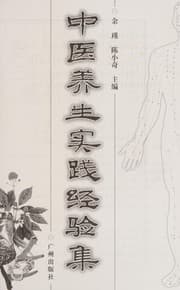 余瑾 陈小奇 主编
中医养生实践经验集
广州出版社